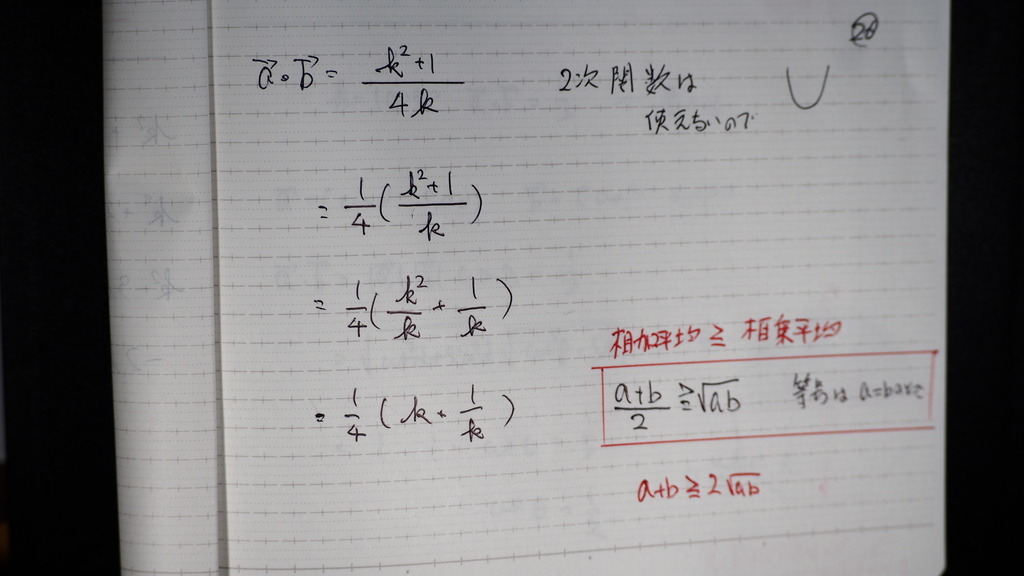 20
a⃗・b⃗ = (k²+1)/(4k)
2次関数は
使えないので
= 1/4 ( (k²+1)/k )
= 1/4 ( k²/k + 1/k )
= 1/4 ( k + 1/k )
相加平均 ≧ 相乗平均
(a+b)/2 ≧ √ab 等号は a=bのとき
a+b ≧ 2√ab